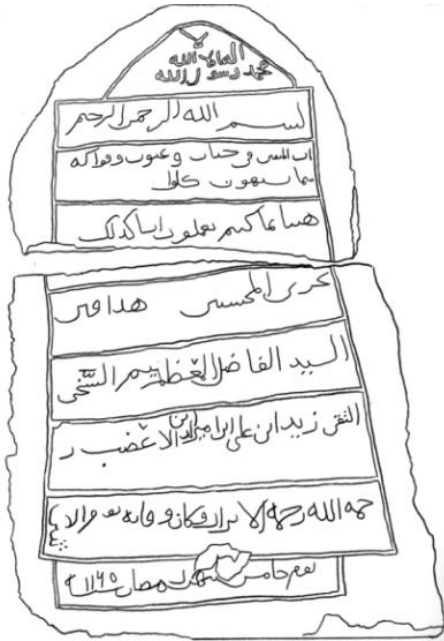 لا اله الا الله
محمد رسول الله
بسم الله الرحمن الرحيم
ان المتقين في جنات وعيون وفواكه
مما يشتهون كلوا
هنيئا بما كنتم تعملون انا كذلك
نجزي المحسنين هذا قبر
السيد الفاضل السخي
التقي زيد ابن علي ابن الاغضب ر
حمه الله رحمة الابرار وكان وفاته يوم الا
يوم خامس شهر رمضان سنة ١١٦٥